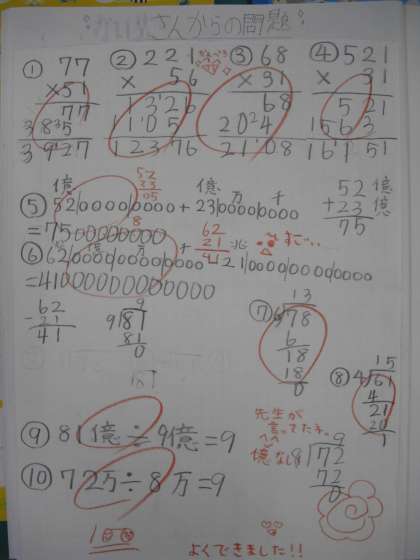 さんからの問題
① 77
× 51
77
385
3927
② 221
× 56
1326
1105
12376
③ 68
× 31
68
204
2108
④ 521
× 31
521
1563
16151
億 億 万 千
⑤ 52|0000|0000 + 23|0000|0000
= 7500000000
52億
+ 23億
75
⑥ 62|0000|0000|0000
兆
21|0000|0000|0000
= 41000000000000
62
- 21
41
9
9)81
81
0
⑦ 13
6)78
6
18
18
0
⑧ 15
4)61
4
21
20
1
⑨ 81億÷9億=9
⑩ 72万÷8万=9
先生が
言ってたネ。
億なし
9
8)72
72
0
100
よくできました!!